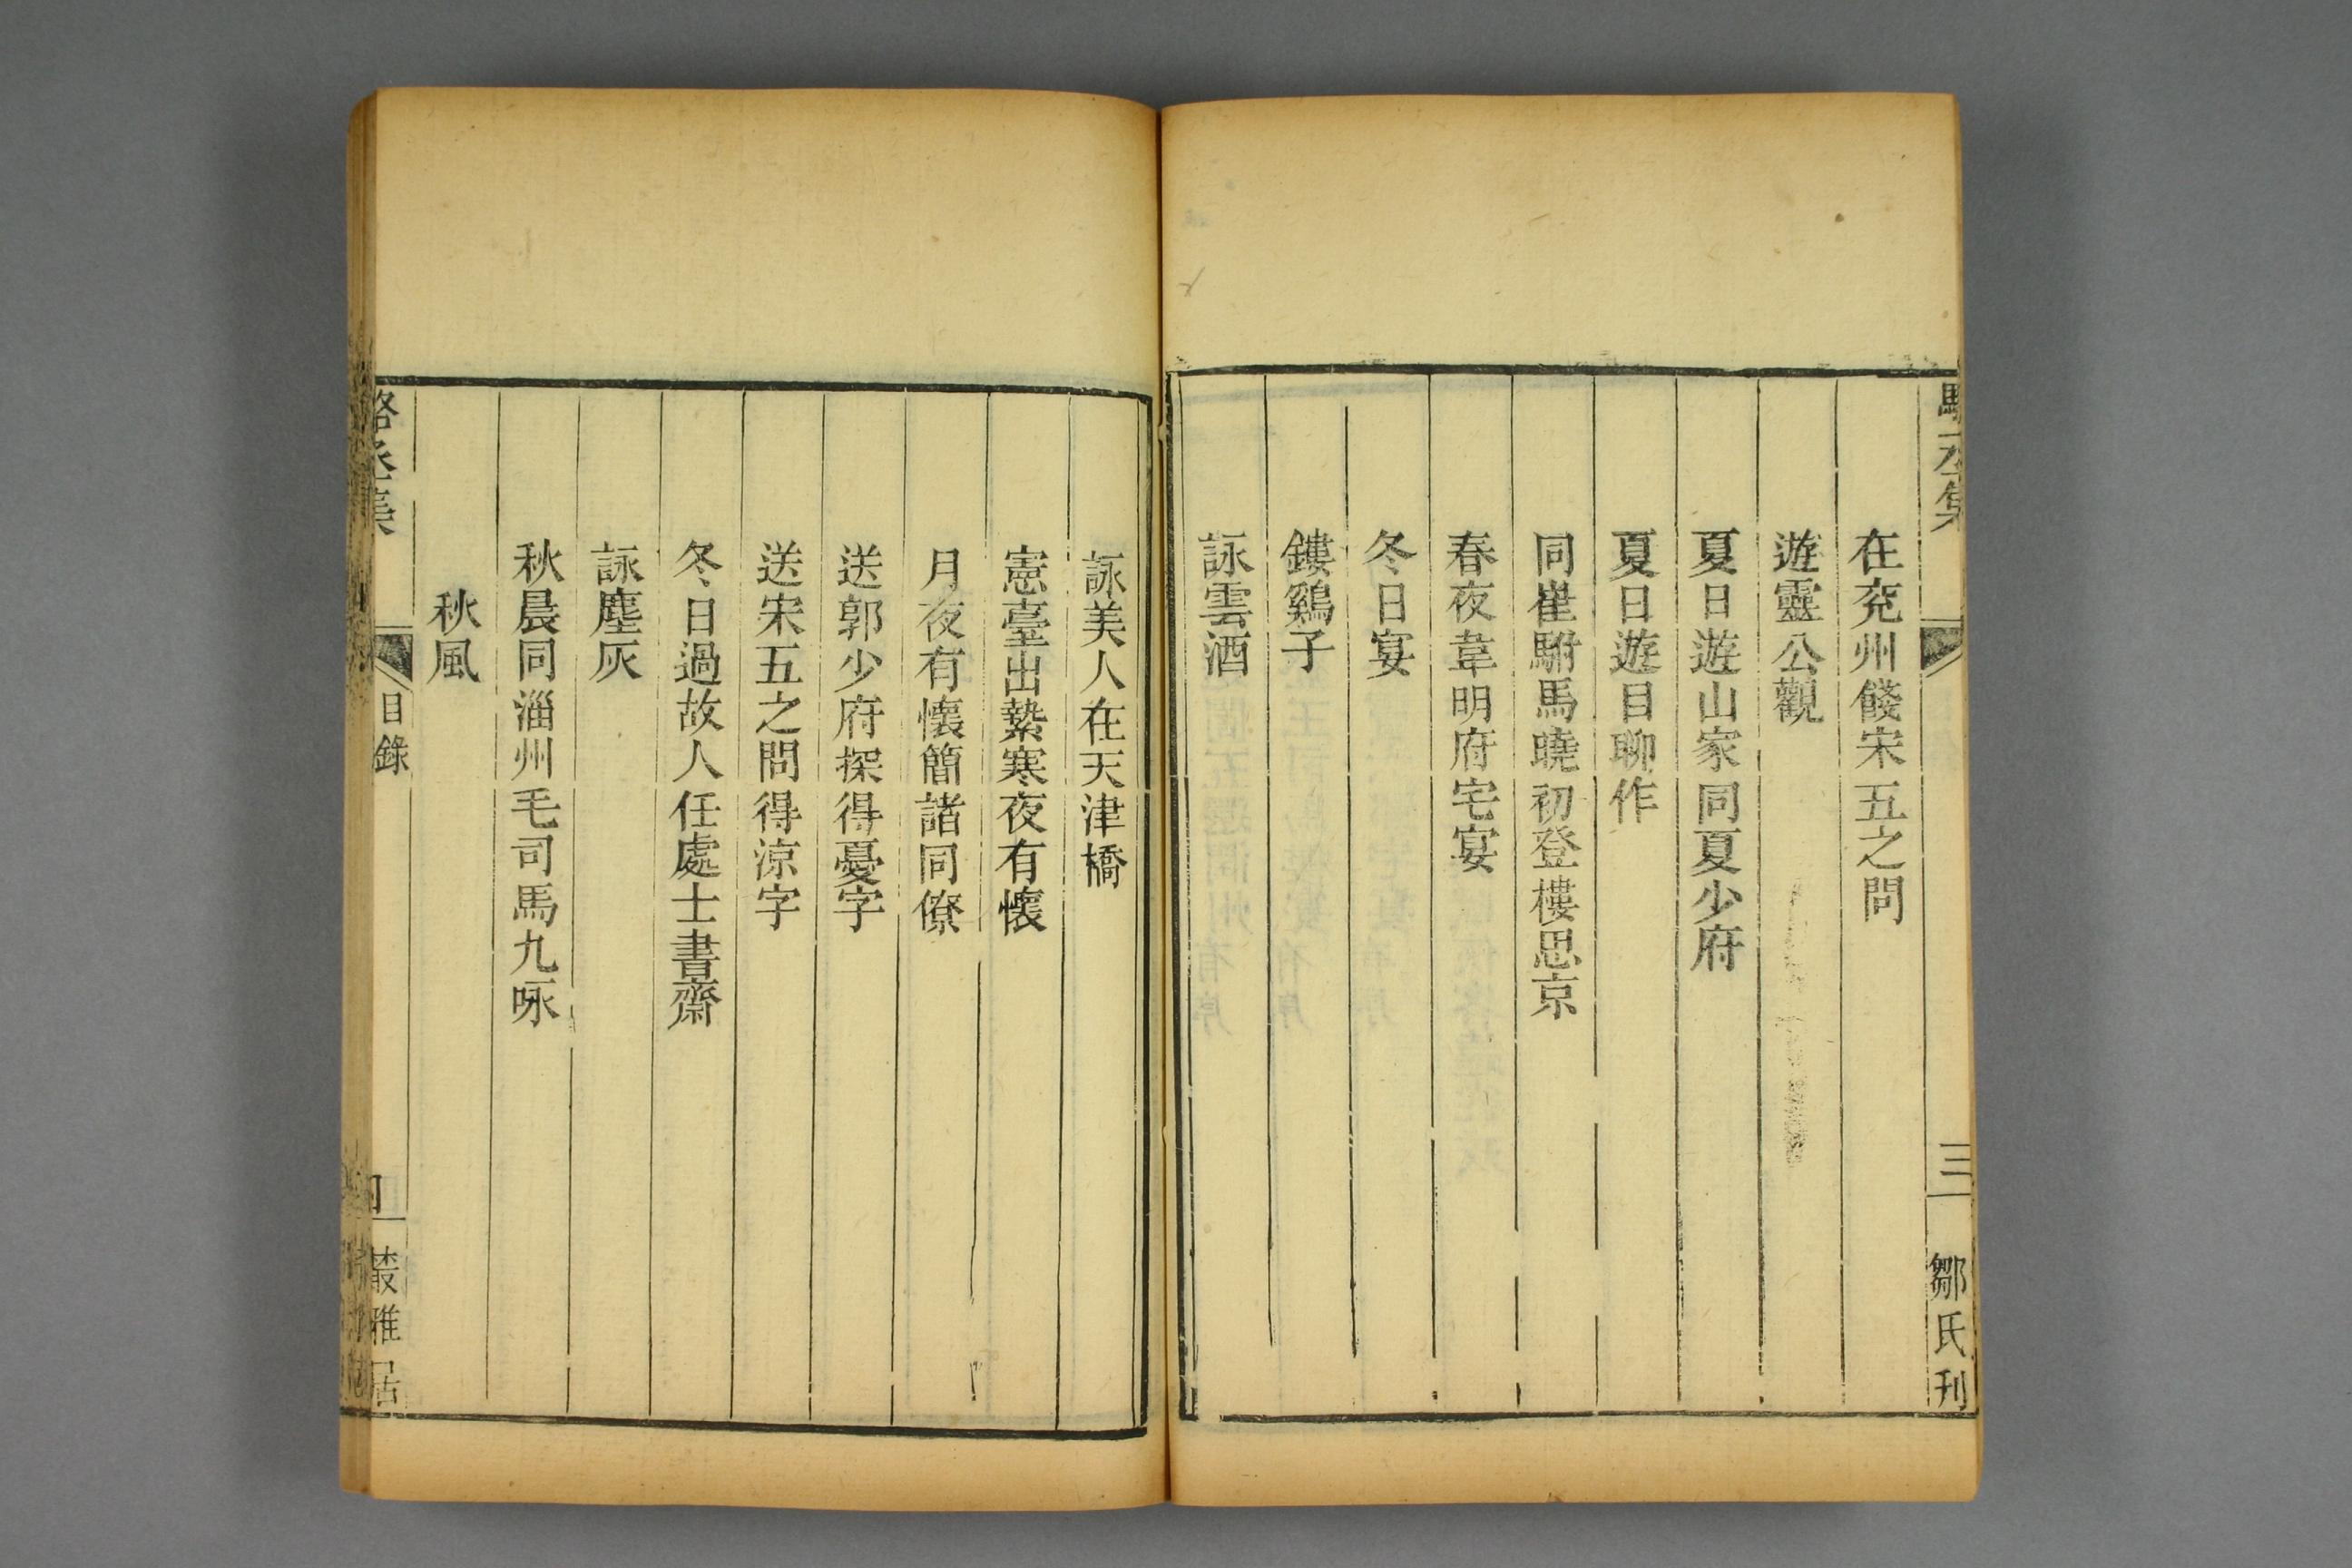 集
三
鄒氏刊
在兗州餞宋五之問
遊靈公觀
夏日遊山家同夏少府
夏日遊目聊作
同崔駙馬曉初登樓思京
春夜韋明府宅宴
冬日宴
鏤鷄子
詠雲酒
詠美人在天津橋
憲臺出縶寒夜有懷
月夜有懷簡諸同僚
送郭少府探得憂字
送宋五之問得涼字
冬日過故人任處士書齋
詠塵灰
秋晨同淄州毛司馬九咏
秋風
目錄
叢雅居